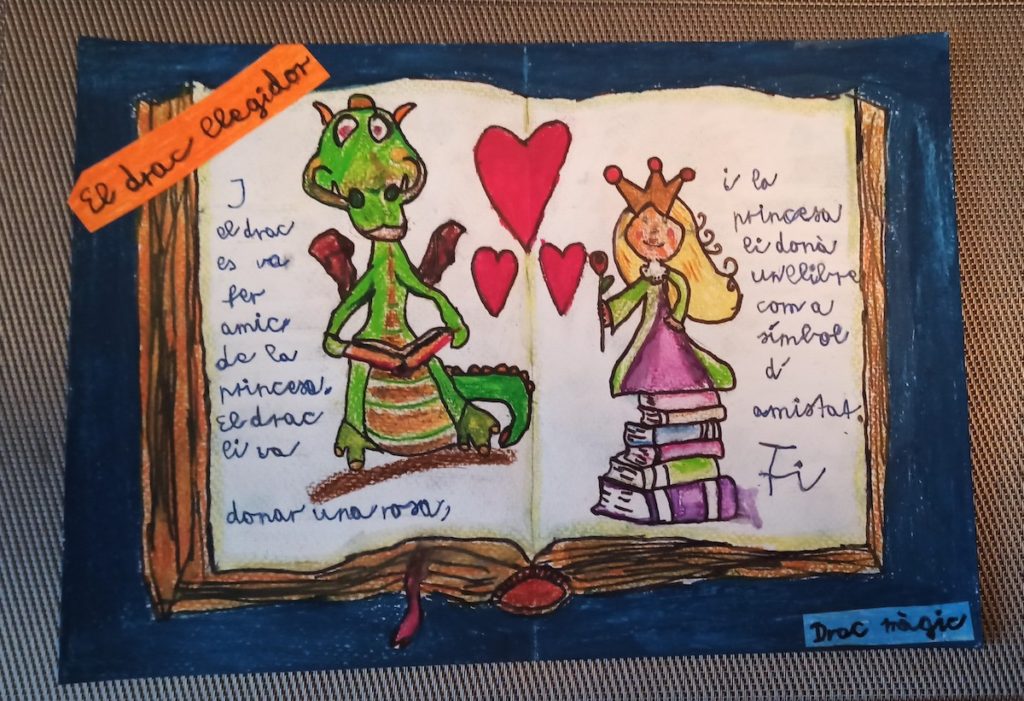 El drac llegidor
I
el drac
es va
fer
amic
de la
princesa.
El drac
li va
donar una rosa,
i la
princesa
li donà
un llibre
com a
símbol
d'
amistat.
Fi
Drac màgic